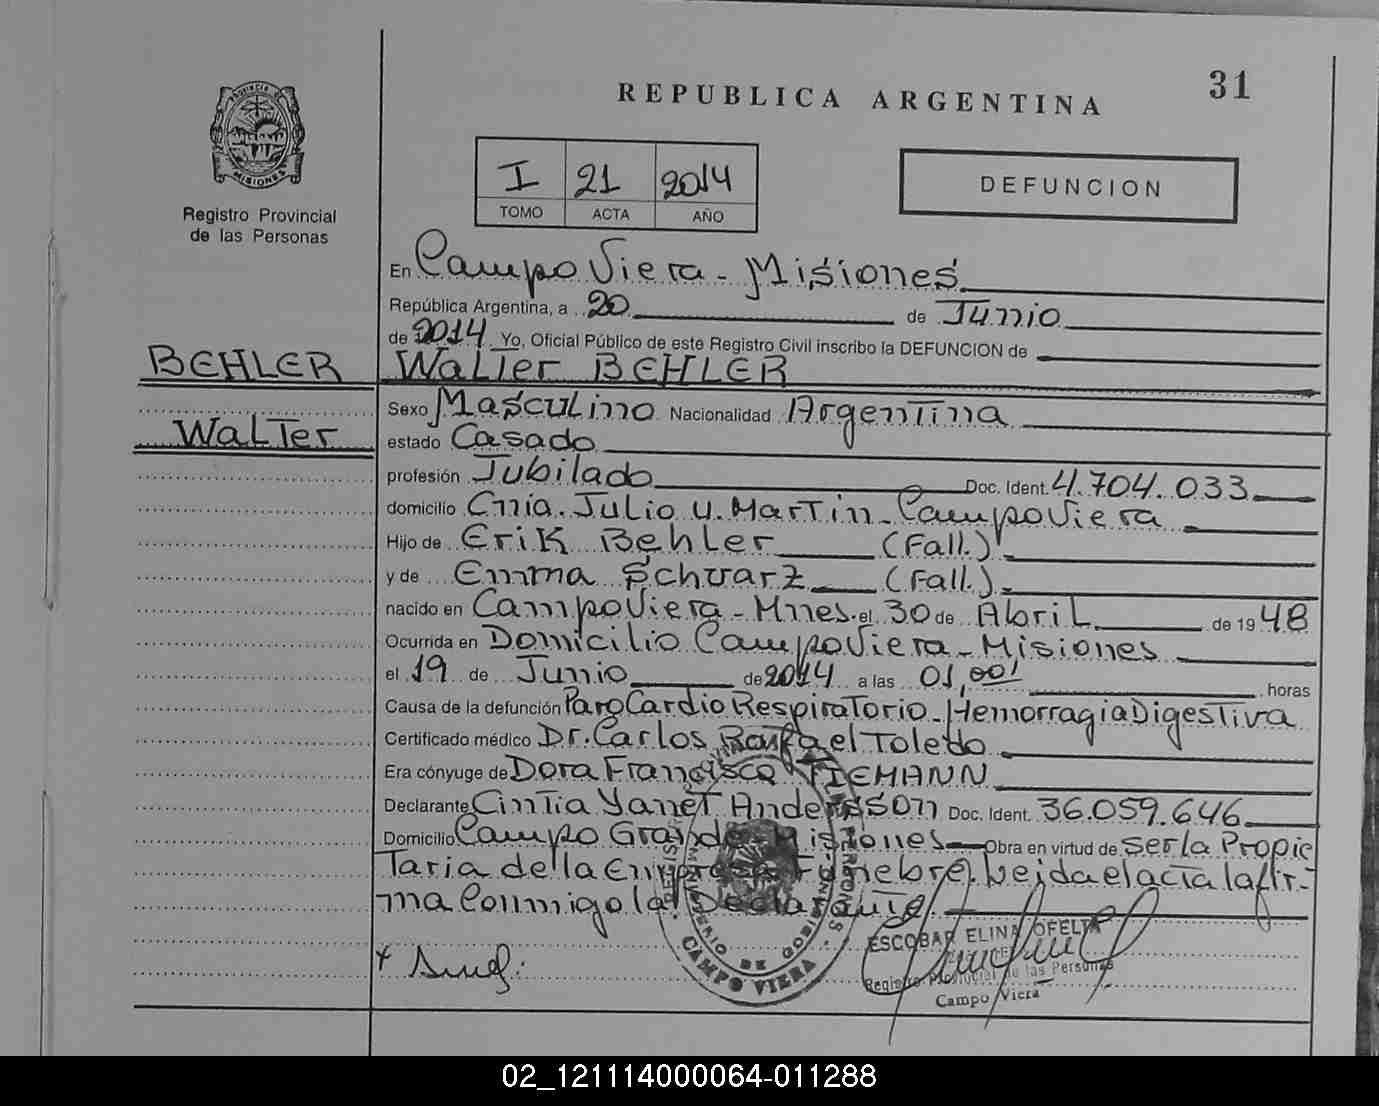 31
REPUBLICA ARGENTINA
PROVINCIA DE
MISIONES
Registro Provincial
de las Personas
I 21 2014
TOMO ACTA AÑO
DEFUNCION
En Campo Viera - Misiones
República Argentina, a 20 de Junio
de 2014 Yo, Oficial Público de este Registro Civil inscribo la DEFUNCION de
BEHLER Walter BEHLER
Sexo Masculino Nacionalidad Argentina
Walter estado Casado
profesión Jubilado Doc. Ident. 4.704.033
domicilio Cnia. Julio U. Martin - Campo Viera
Hijo de Erik Behler (Fall.)
y de Emma Schwarz (Fall.)
nacido en Campo Viera - Mnes. el 30 de Abril de 1948
Ocurrida en Domicilio Campo Viera - Misiones
el 19 de Junio de 2014 a las 01,00' horas
Causa de la defunción Paro Cardio Respiratorio - Hemorragia Digestiva
Certificado médico Dr. Carlos Rafael Toledo
Era cónyuge de Dora Francisca TIEMANN
Declarante Cintia Yanet Andersson Doc. Ident. 36.059.646
Domicilio Campo Grande - Misiones Obra en virtud de ser la Propie
taria de la Empresa Funebre. Leida el acta la fir-
ma Conmigo la Declarante
MINISTERIO DE GOBIERNO
CAMPO VIERA
ESCOBAR ELINA OFELIA
Registro Provincial de las Personas
Campo Viera
02_121114000064-011288